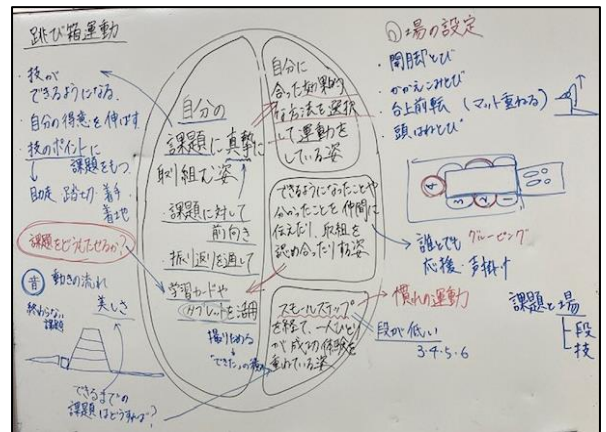 跳び箱運動
・技が
できるようになる
・自分の得意を伸ばす
・技のポイントに
課題をもつ
助走 踏切 着手
着地
課題をどうもたせるか?
昔 動きの流れ
美しさ
終わらない
課題
できるまでの
課題はどうすれば?
自分の
課題に真摯に
取り組む姿
・課題に対して
前向き
・振り返りを通して
学習カードや
タブレットを活用
撮りためる
自分に
合った効果的
な方法を選択
して運動を
している姿
できるようになったことや
分かったことを仲間に
伝えたり、取組を
認め合ったりする姿
スモールステップ
を経て、一人ひとり
が成功体験を
重ねている姿
場の設定
・開脚とび
・かかえこみとび
・台上前転 (マット重ねる)
・頭はねとび
誰とでも グルーピング
応援・声掛け
慣れの運動
段が低い
3・4・5・6
課題と場
段
技